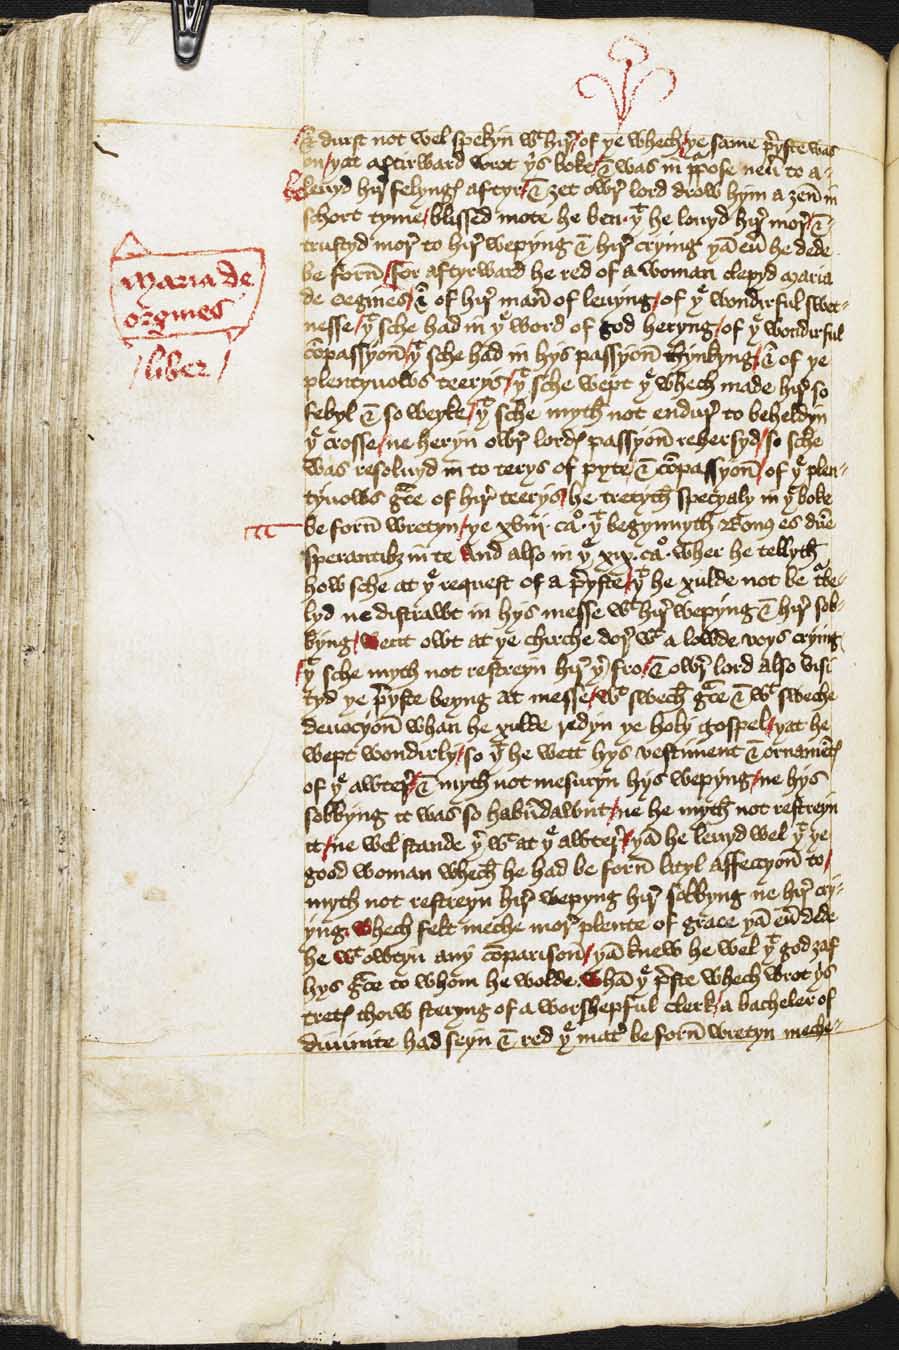 & durst not wel spekyn wt hir / of ye whech / ye same preyste was
on / yat aftirward wrot ys boke / & was in ppose neu to a
be leuyd hir felyngs aftyr / & zet owr lord drow hym a zen in
schort tyme / blissed mote he ben . yt he louyd hir mor / &
trustyd mor to hir wepyng & hir crying yā eu he dede
be forn / for aftyrward he red of a woman clepyd maria
de oegines / & of hir maner of leuyng / of ye wondirful swet-
nesse / yt sche had in ye word of god heryng / of ye wondirful
cōpassyon / yt sche had in hys passyon thynkyng / & of ye
plentyuows teerys / yt sche wept ye whech made hir so
febyl & so weyke / yt sche myth not endur to beheldyn
ye crosse / ne heryn owr lords passyon rehersyd / so sche
was resoluyd in to terys of pyte & cōpassyon / of ye plen-
tyuows gce of hir teerys / he tretyth specyaly in ye boke
be forn wretyn / ye xviii . cao . yt begynnyth Bonus es dne
sperantibz in te And also in ye xix . cao . wher he tellyth
how sche at ye request of a preyste / yt he xulde not be tbe-
lyd ne distrawt in hys messe wt hir wepyng & hir sob-
byng / went owt at ye chirche dor wt a lowde voys crying
/ yt sche myth not restreyn hir yr fro / & owr lord also visi
tyd ye preyste beyng at messe / wt swech gce & wt sweche
deuocyon whan he xulde redyn ye holy gospel / yat he
wept wondirly / so yt he wett hys vestiment & ornamēts
of ye awter / & myth not mesuryn hys wepyng / ne hys
sobbyng it was so habūdawnt / ne he myth not restreyn
it / ne wel stande yr wt at ye awter / yā he leuyd wel yt ye
good woman whech he had be forn lityl affeccyon to /
myth not restreyn hir wepyng hir sobbyng ne hir cry-
yng . whech felt meche mor plente of grace yā eu dede
he wt owtyn any cōparison / yā knew he wel yt god zaf
hys gce to whom he wolde . whā ye preste whech wrot ys
tretys thorw steryng of a worshepful clerk / a bacheler of
diuinite had seyn & red ye mater be forn wretyn meche-
maria de
orgines
/ liber /